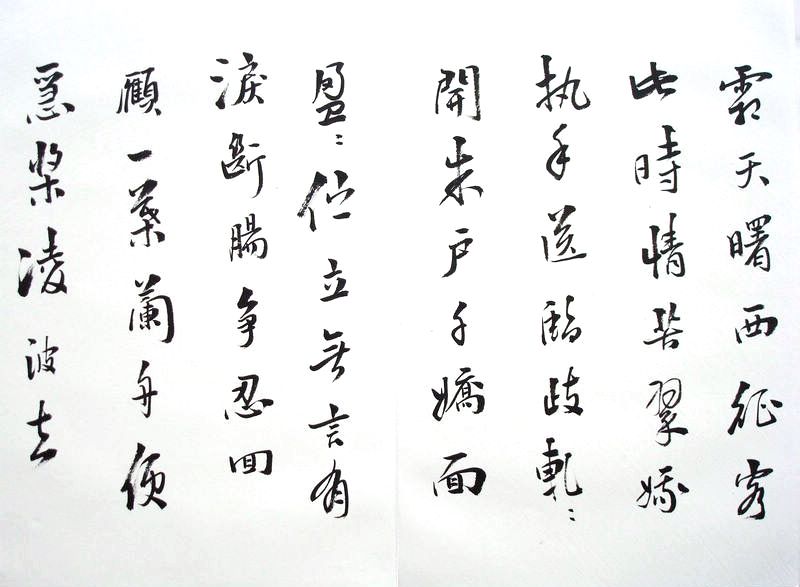 霜天曙西征客
此時情苦翠娥
执手送臨歧軋々
開朱戶千嬌面
盈々佇立無言有
淚斷腸争忍回
顧一葉蘭舟便
急槳淩波去